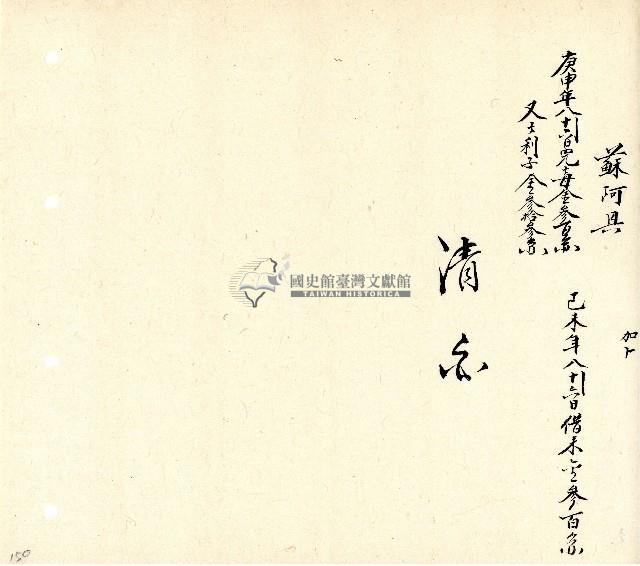 蘇阿具
加卜
庚申年八月十六日兌母金參百
又利子金參拾參
己未年八月十六日借末金參百
清
國史館臺灣文獻館
TAIWAN HISTORICA
150